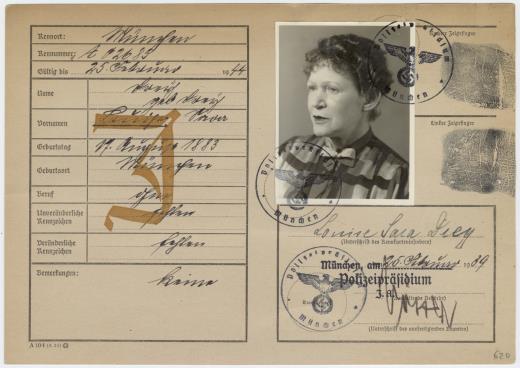 Kennort: München
Kennummer: A 02685
Gültig bis 25. Februar 1944
Name
Vornamen Sara
Geburtstag 17. August 1883
Geburtsort München
Beruf
Unveränderliche Kennzeichen fehlen
Veränderliche Kennzeichen fehlen
Bemerkungen: Keine
J
A 104
Rechter Zeigefinger
Linker Zeigefinger
Polizeipräsidium München
Polizeipräsidium München
Louise Sara
(Unterschrift des Kennkarteninhabers)
Polizeipräsidium München
München, am 25. Februar 1939
Polizeipräsidium
J. A.
(Unterschrift des ausfertigenden Beamten)
620